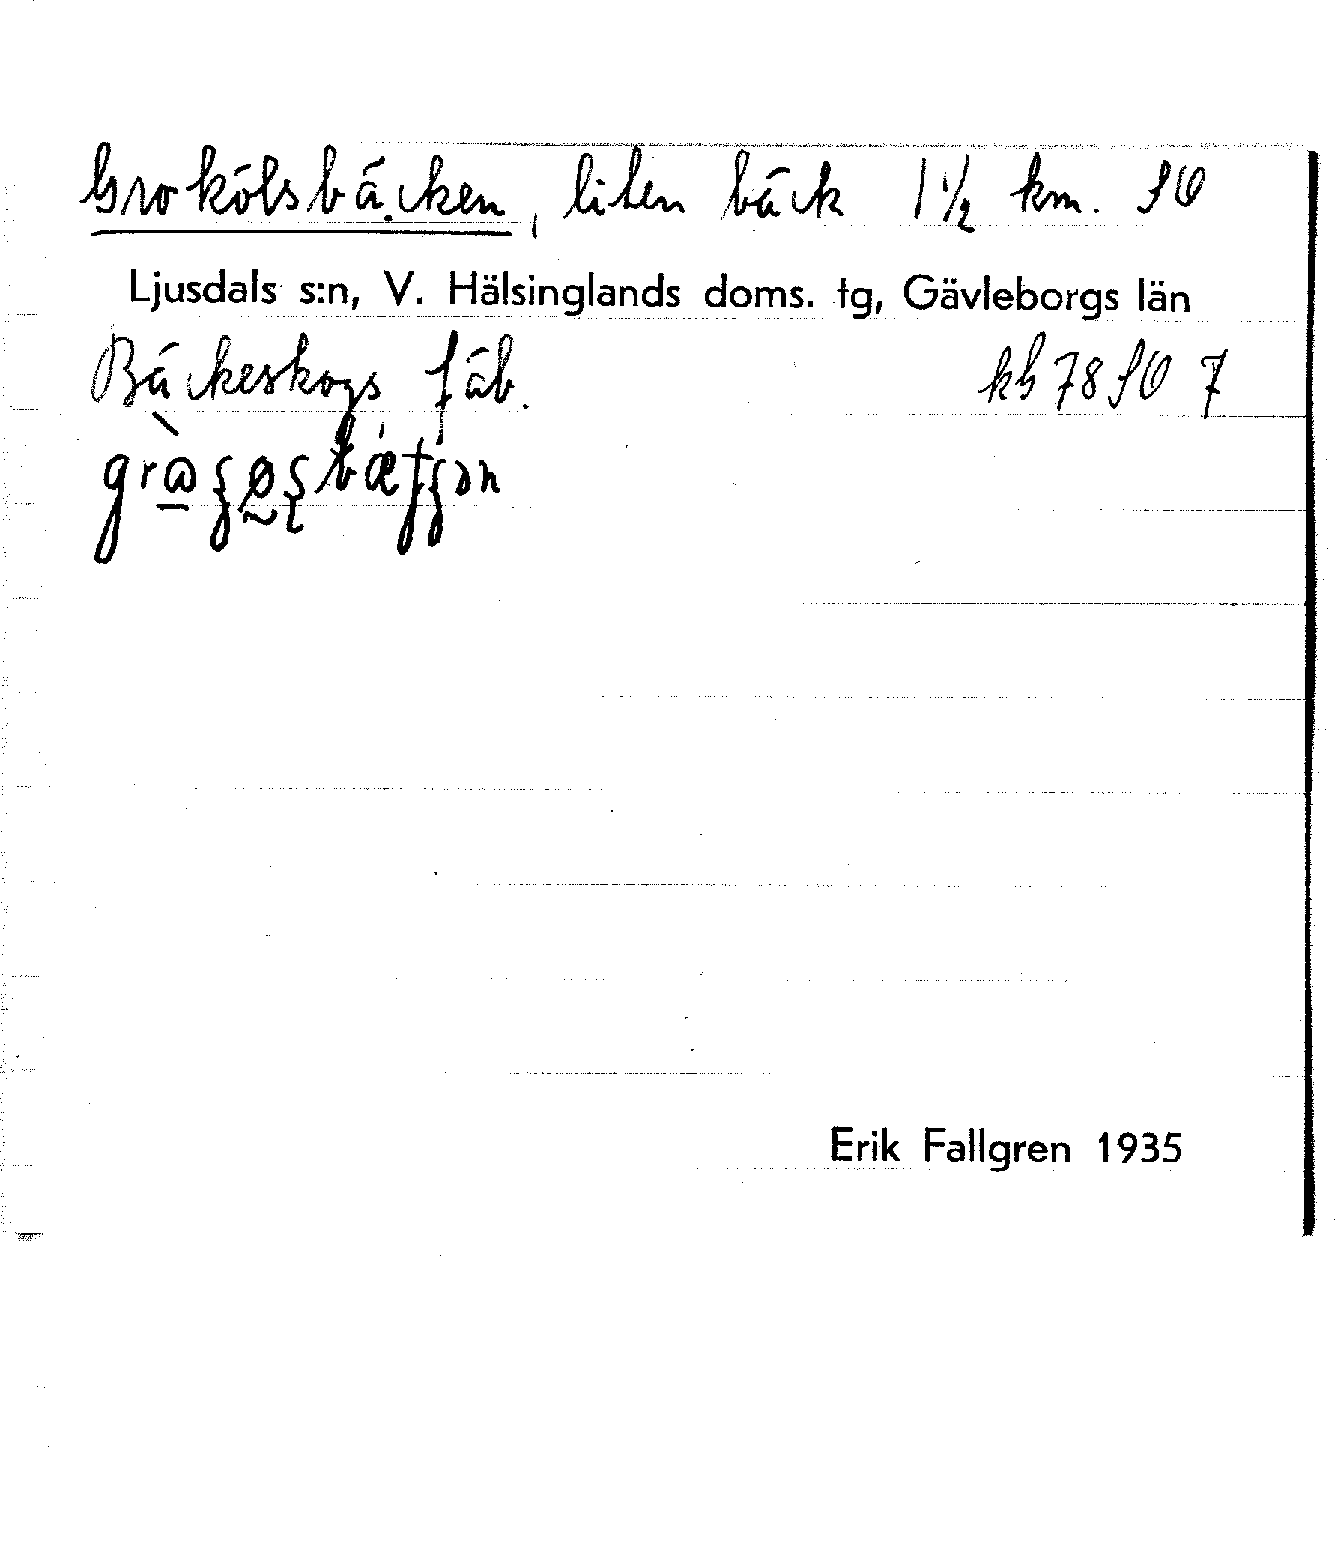 Grokölsbäcken, liten bäck 1 1/2 km. SO
Ljusdals s:n, V. Hälsinglands doms. tg, Gävleborgs län
Bäckeskogs fäb. kb 78 SO 7
Erik Fallgren 1935